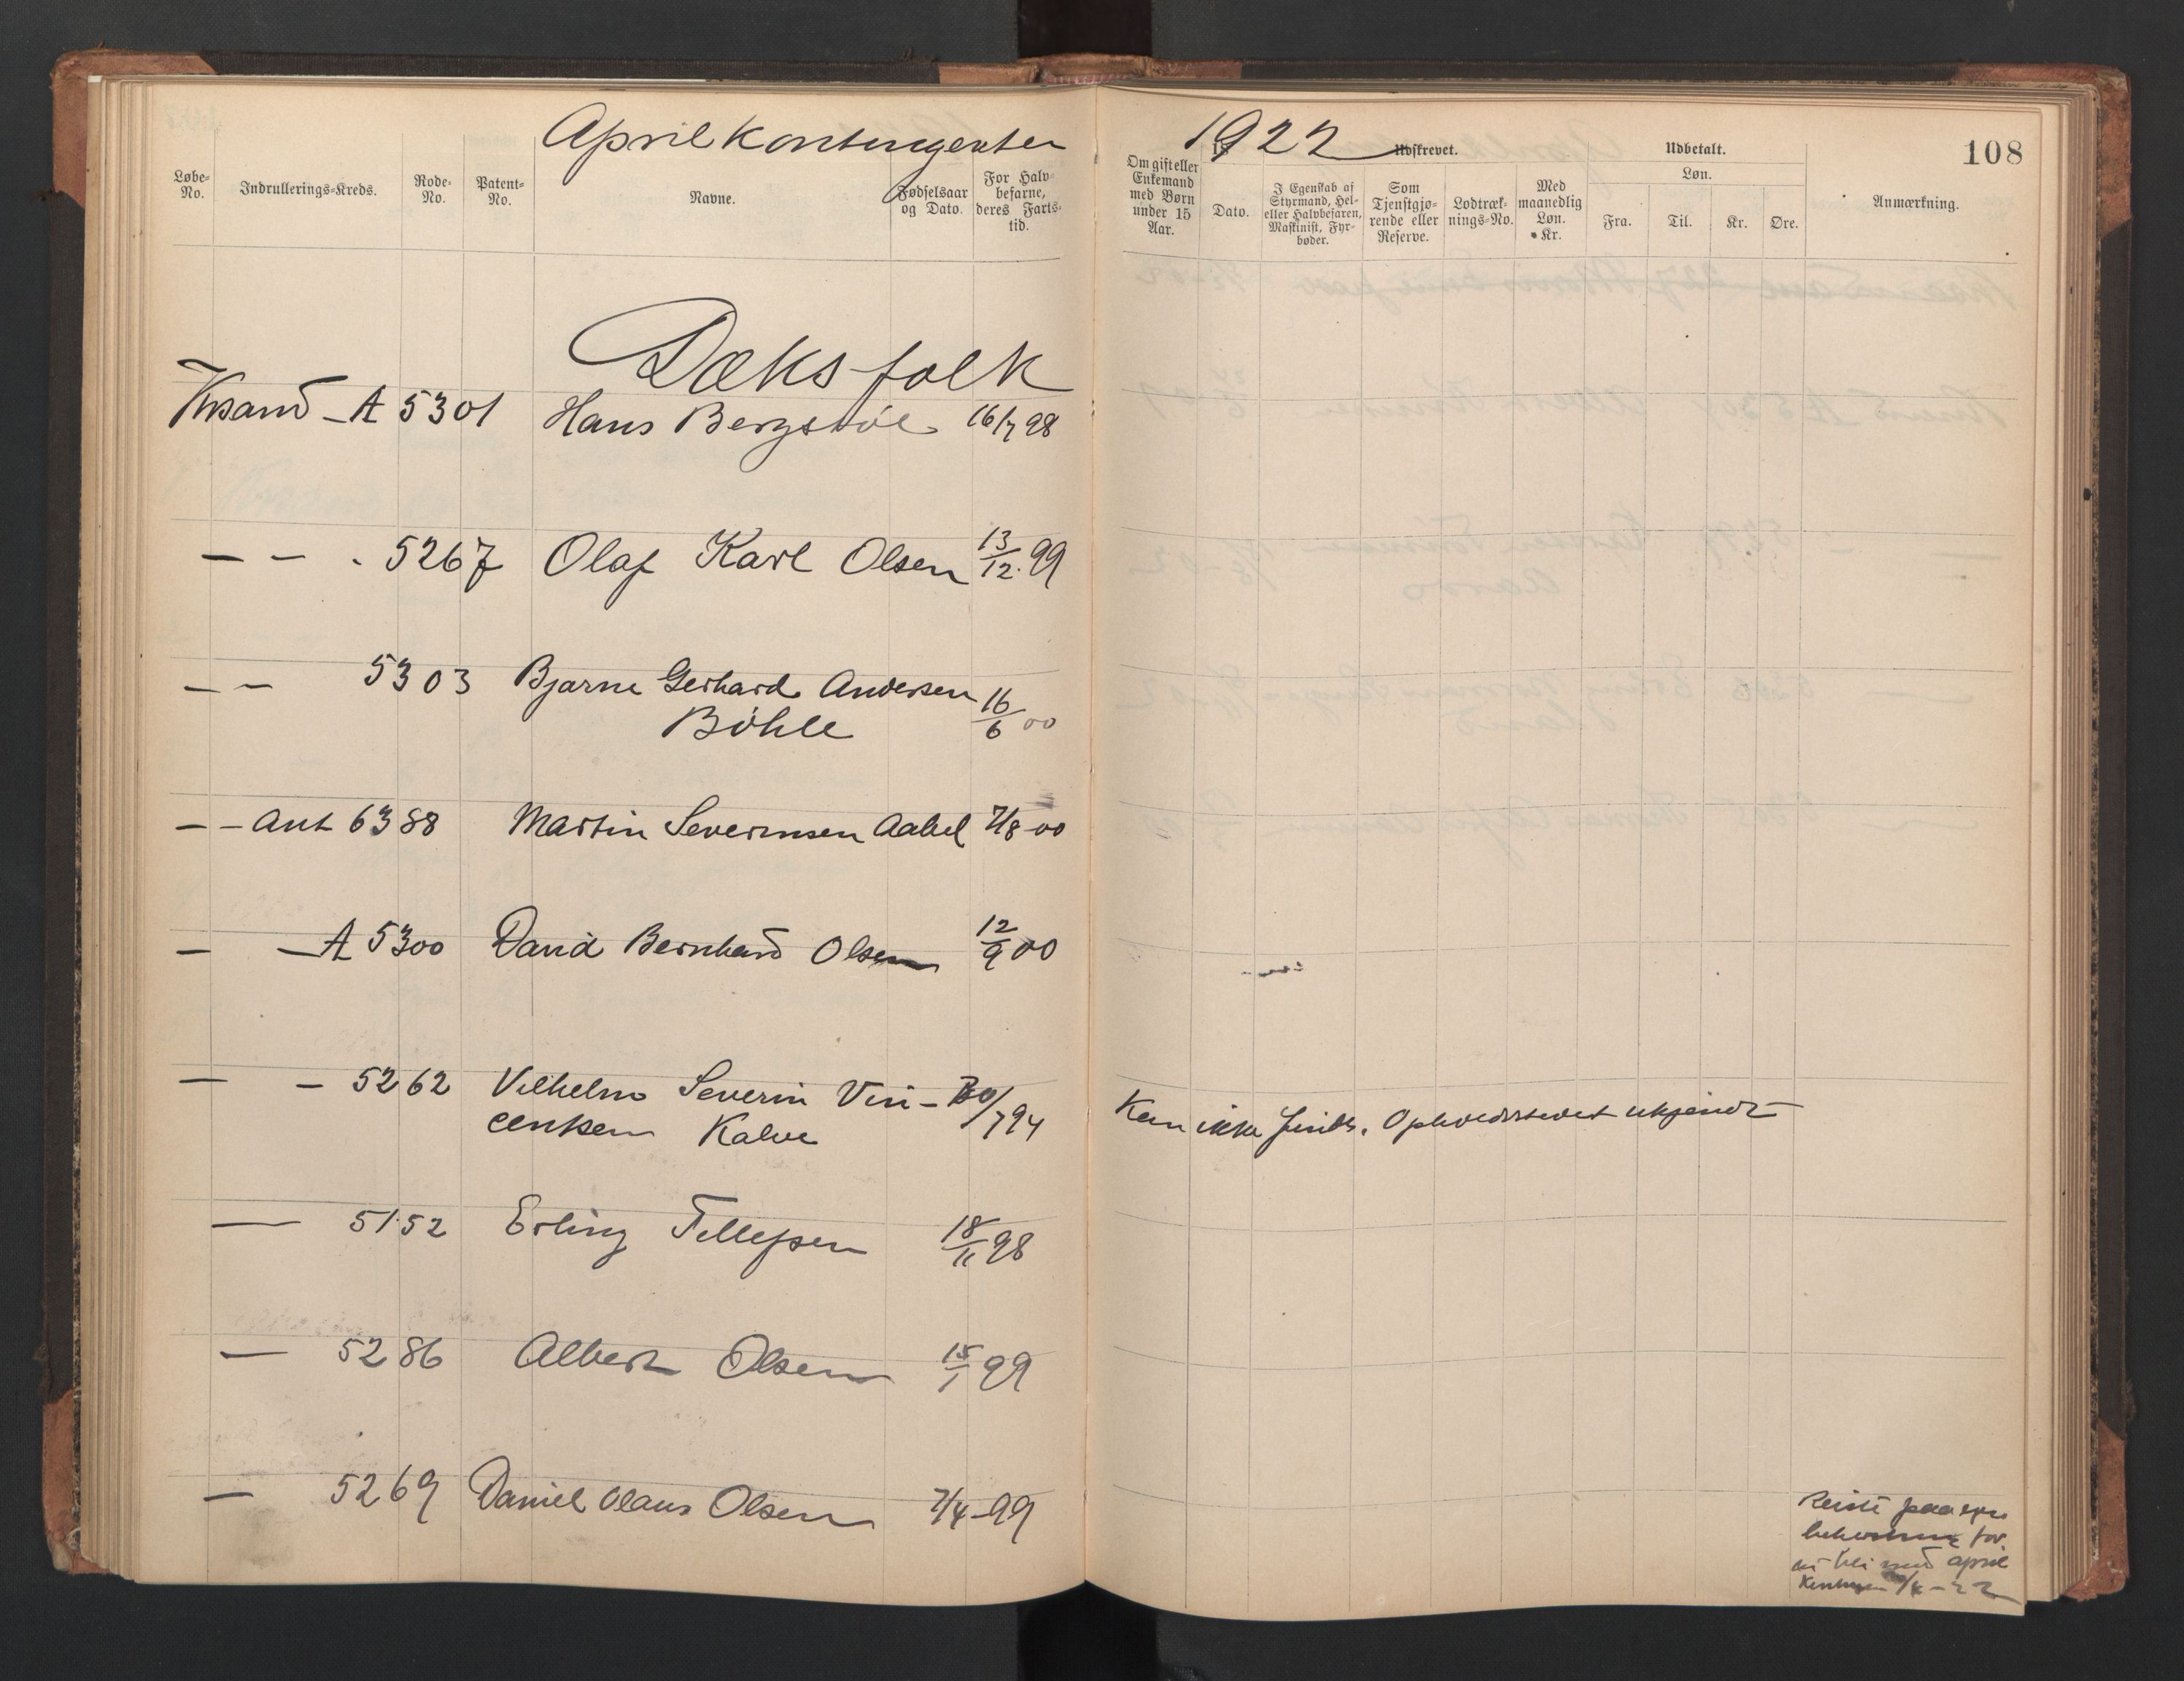 Aprilkontingenten 1922
108
Løbe-No.
Indrullerings-Kreds.
Rode-No.
Patent-No.
Navne.
Fødselsaar og Dato.
For Halvbefarne, deres Farts-tid.
Om gift eller Enkemand med Børn under 15 Aar.
18
Udskrevet.
Dato.
I Egenskab af Styrmand, Hel- eller Halvbefaren, Maskinist, Fyrbøder.
Som Tjenstgjørende eller Reserve.
Lodtræknings-No.
Med maanedlig Løn. Kr.
Udbetalt.
Løn.
Fra.
Til.
Kr.
Øre.
Anmærkning.
Dæksfolk
Krsand - A 5301 Hans Bergstöl 16/7 98
— — . 5267 Olaf Karl Olsen 13/12. 99
— — 5303 Bjarne Gerhard Andersen 16/6 00
Böhle
— — Ant 6388 Martin Severinsen Aabel 7/8 00
— — A 5300 David Bernhard Olsen 12/9 00
— — 5262 Vilhelm Severin Vin- 30/7 94 Kan ikke findes. Opholdsstedet ukjendt
centsen Kalve
— 5152 Erling Tellefsen 18/11 98
— 5286 Albert Olsen 15/1 99
— 5269 Daniel Olaus Olsen 7/4-99
Reiste paa
for
bli med april
-22